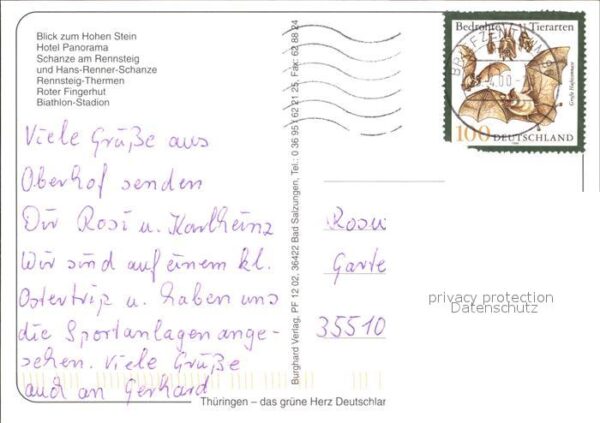 Blick zum Hohen Stein
Hotel Panorama
Schanze am Rennsteig
und Hans-Renner-Schanze
Rennsteig-Thermen
Roter Fingerhut
Biathlon-Stadion
Viele Grüße aus
Oberhof senden
Dir Rosi u. Karlheinz
Wir sind auf einem kl.
Ostertrip u. haben uns
die Sportanlagen ange-
sehen. Viele Grüße
auch an Gerhard
Burghard Verlag, PF 12 02, 36422 Bad Salzungen, Tel.: 0 36 95/62 21 25, Fax: 62 88 24
Bedrohte Tierarten
BRIEFZENTRUM
.00-
Große Hufeisennase
100 DEUTSCHLAND
Rosw
Garte
35510
privacy protection
Datenschutz
Thüringen – das grüne Herz Deutschlan